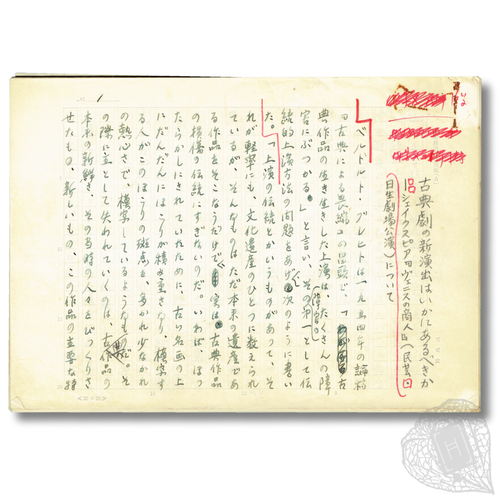 古典劇の新演出はいかにあるべきか
シェイクスピア「ヴェニスの商人」(民芸
日生劇場公演)について
ベルトルト・ブレヒトは一九五四年の論稿
の冒頭で、「古
典作品の生き生きした上演は、たくさんの障
害にぶつかる。」と言い、その第一として伝
統的上演方法の問題をあげ、次のように書い
た。「上演の伝統とかいうものがあって、そ
れが軽率にも、文化遺産のひとつに数えられ
ているが、そんなものはただ本来の遺産であ
る作品をそこなうだけで、実は
の損傷の伝統にすぎないのだ。いわば、ほっ
たらかしにされていたために、古い名画の上
にだんだんにほこりが積み重なり、模写す
る人がこのほこりの斑点を、多かれ少なかれ
の熱心さで、模写しているようなもの
の際に主として失われていくのは、古典作品の
本来の新鮮さ、その当時の人々をびっくりさ
せたもの、新しいもの、この作品の主要な特
1